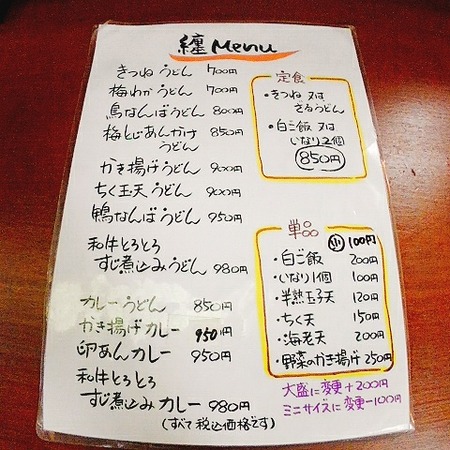 纏 Menu
きつねうどん 700円
梅わかうどん 700円
鳥なんばうどん 800円
梅とじあんかけ 850円
うどん
かき揚げうどん 900円
ちく玉天うどん 900円
鴨なんばうどん 950円
和牛とろとろ
すじ煮込みうどん 980円
カレーうどん 850円
かき揚げカレー 950円
卵あんカレー 950円
和牛とろとろ
すじ煮込みカレー 980円
(すべて税込価格です)
定食
・きつね 又は
ざるうどん
・白ご飯 又は
いなり2個
850円
単品
・白ご飯 200円
小 100円
・いなり1個 100円
・半熟玉子天 120円
・ちく天 150円
・海老天 200円
・野菜のかき揚げ 250円
大盛に変更+200円
ミニサイズに変更-100円